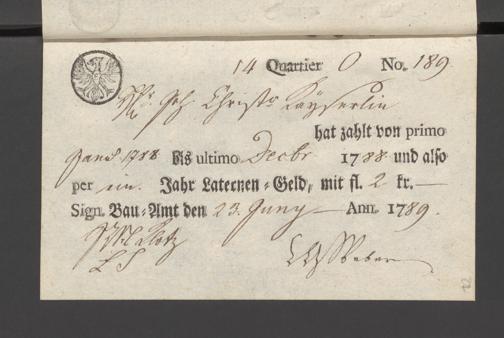 14 Quartier O No. 189.
Joh Christ. Käyserlin
hat zahlt von primo
Janr. 1788 bis ultimo Decbr 1788 und also
per ein. Jahr Laternen-Geld, mit fl. 2 kr. —
Sign. Bau-Amt den 23. Juny — Ann. 1789.